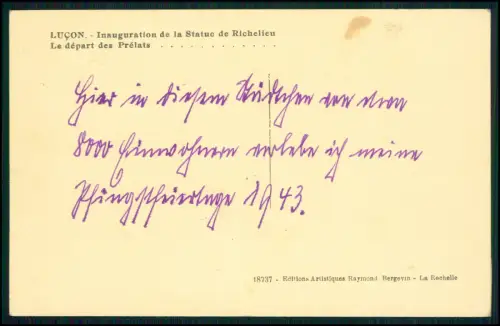 LUÇON. - Inauguration de la Statue de Richelieu
Le départ des Prélats . . . . . . . . . . . .
Hier in diesem Städtchen von etwa
8000 Einwohnern verlebe ich meine
Pfingstfeiertage 1943.
18737 - Editions Artistiques Raymond Bergevin - La Rochelle